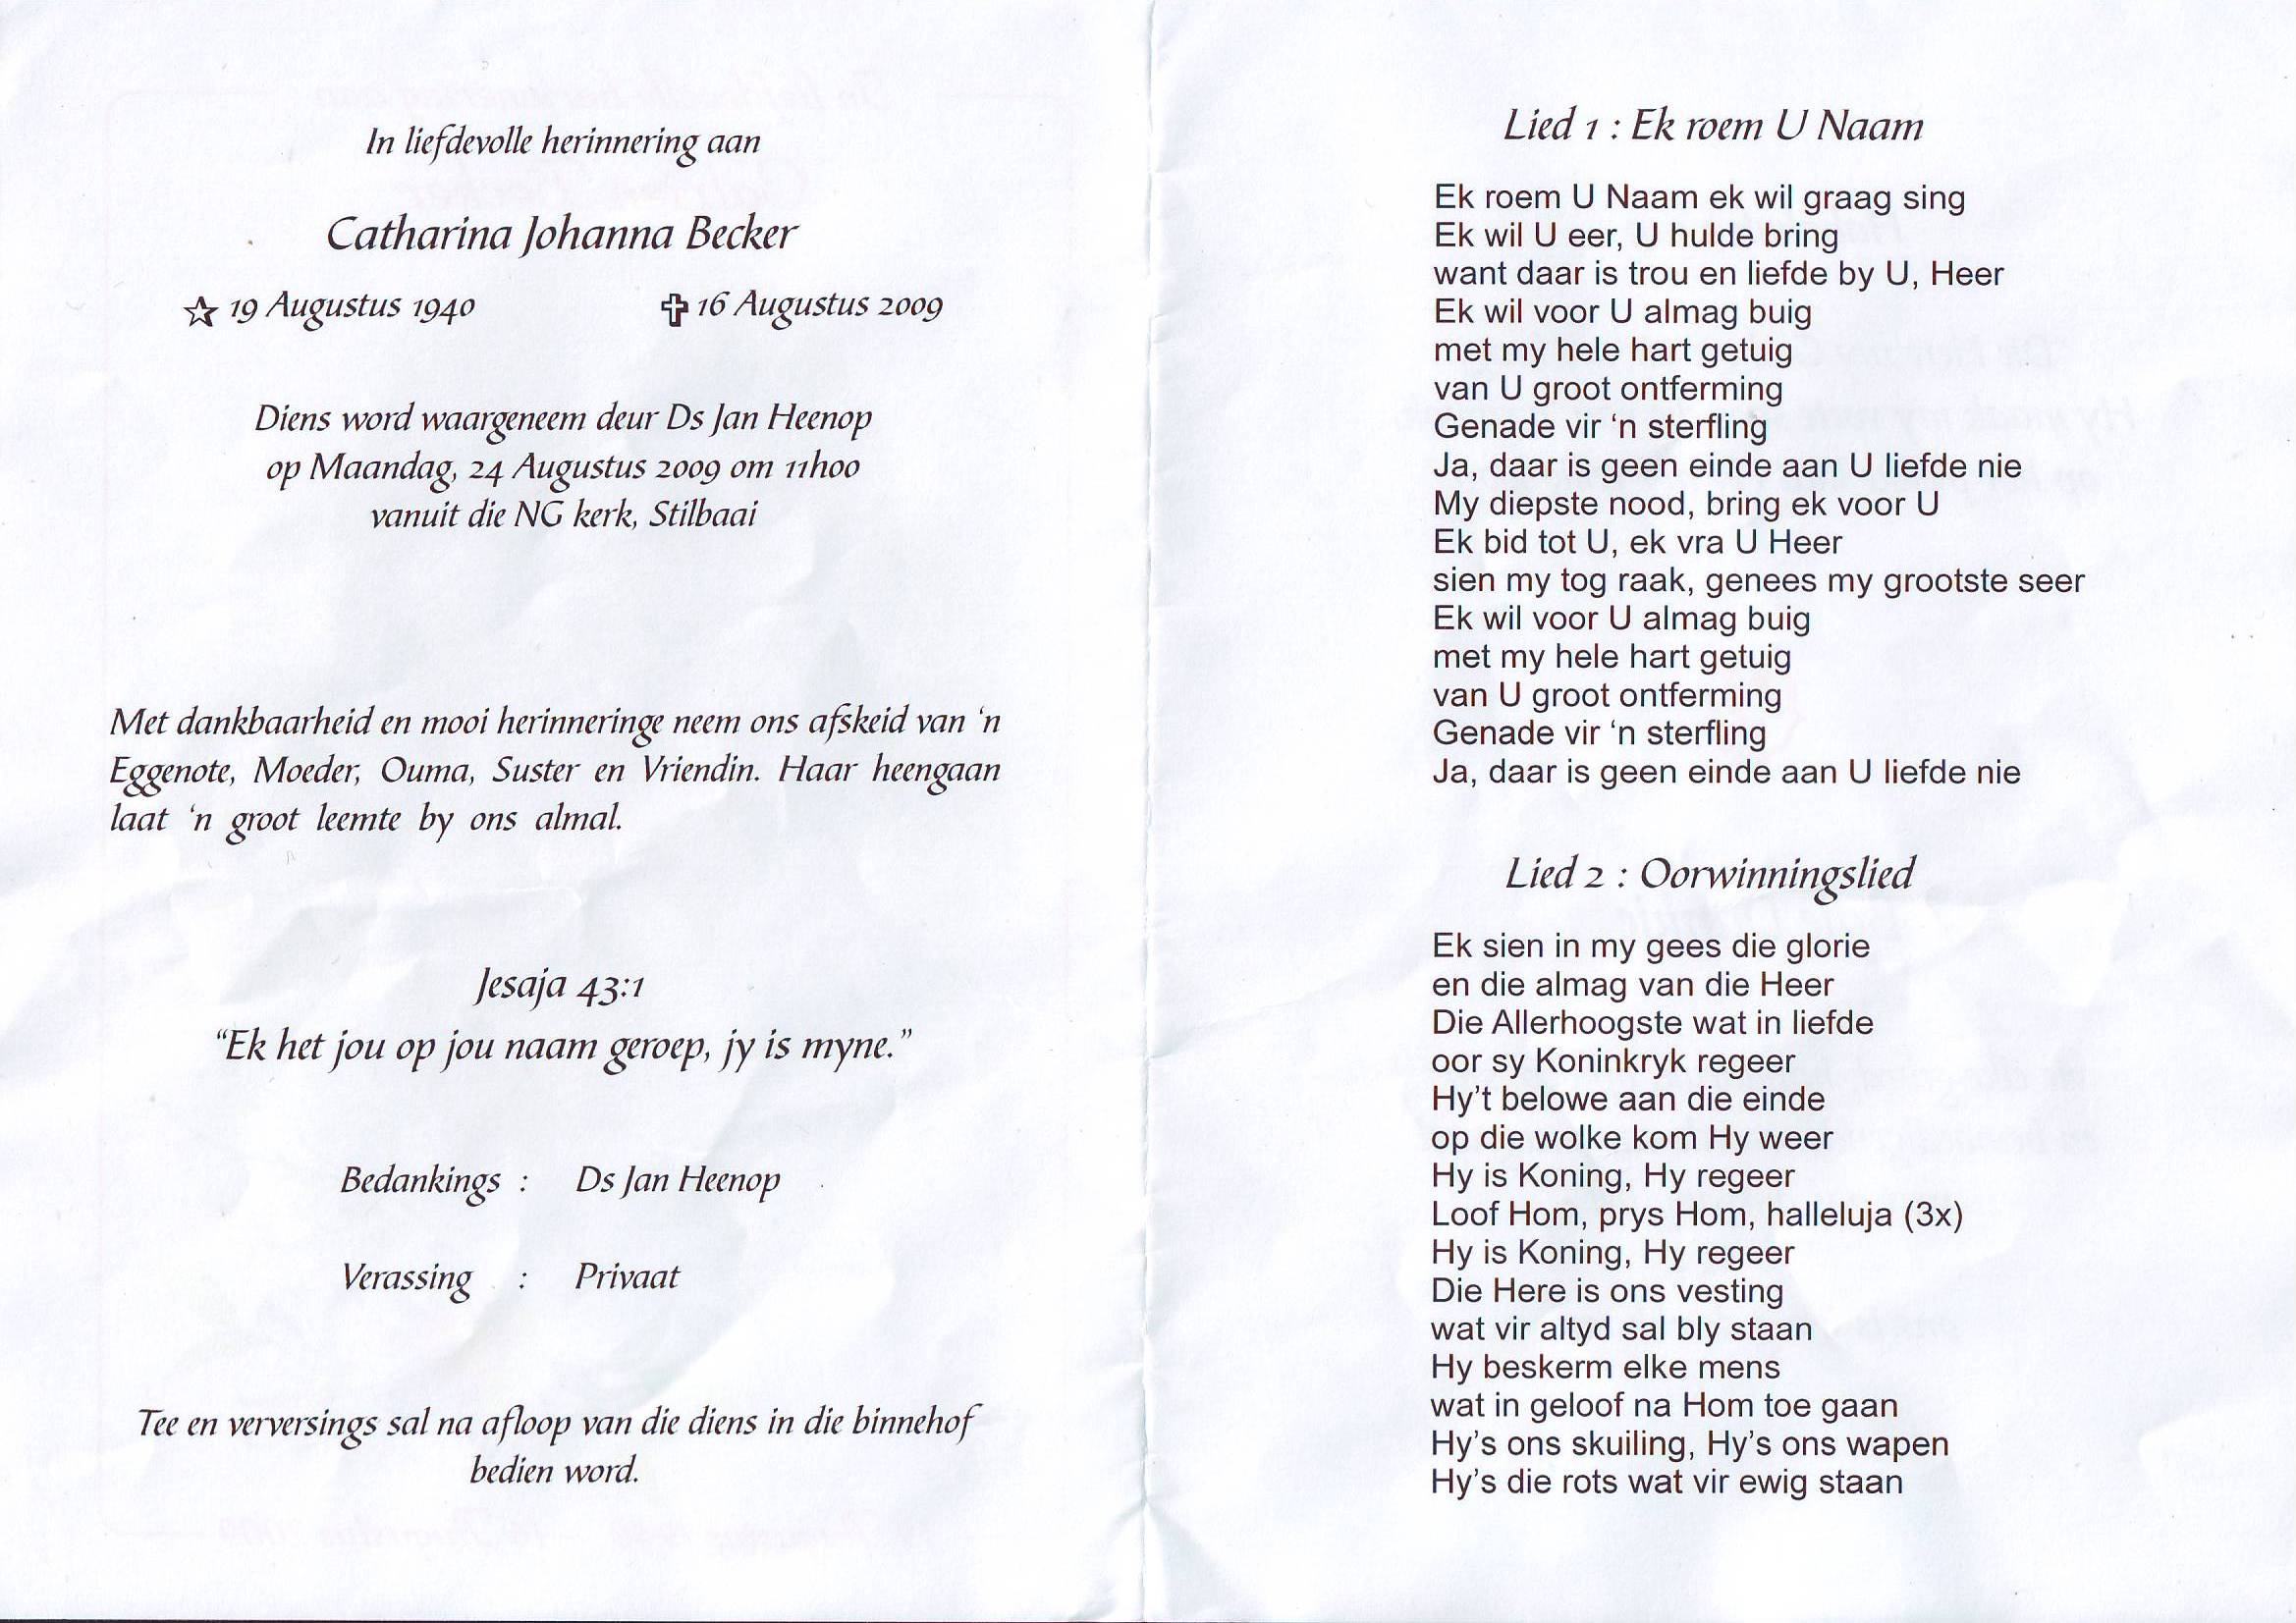 In liefdevolle herinnering aan
Catharina Johanna Becker
19 Augustus 1940 16 Augustus 2009
Diens word waargeneem deur Ds Jan Heenop
op Maandag, 24 Augustus 2009 om 11h00
vanuit die NG kerk, Stilbaai
Met dankbaarheid en mooi herinneringe neem ons afskeid van ‘n
Eggenote, Moeder, Ouma, Suster en Vriendin. Haar heengaan
laat ‘n groot leemte by ons almal.
Jesaja 43:1
“Ek het jou op jou naam geroep, jy is myne.”
Bedankings : Ds Jan Heenop
Verassing : Privaat
Tee en verversings sal na afloop van die diens in die binnehof
bedien word.
Lied 1 : Ek roem U Naam
Ek roem U Naam ek wil graag sing
Ek wil U eer, U hulde bring
want daar is trou en liefde by U, Heer
Ek wil voor U almag buig
met my hele hart getuig
van U groot ontferming
Genade vir ‘n sterfling
Ja, daar is geen einde aan U liefde nie
My diepste nood, bring ek voor U
Ek bid tot U, ek vra U Heer
sien my tog raak, genees my grootste seer
Ek wil voor U almag buig
met my hele hart getuig
van U groot ontferming
Genade vir ‘n sterfling
Ja, daar is geen einde aan U liefde nie
Lied 2 : Oorwinningslied
Ek sien in my gees die glorie
en die almag van die Heer
Die Allerhoogste wat in liefde
oor sy Koninkryk regeer
Hy’t belowe aan die einde
op die wolke kom Hy weer
Hy is Koning, Hy regeer
Loof Hom, prys Hom, halleluja (3x)
Hy is Koning, Hy regeer
Die Here is ons vesting
wat vir altyd sal bly staan
Hy beskerm elke mens
wat in geloof na Hom toe gaan
Hy’s ons skuiling, Hy’s ons wapen
Hy’s die rots wat vir ewig staan